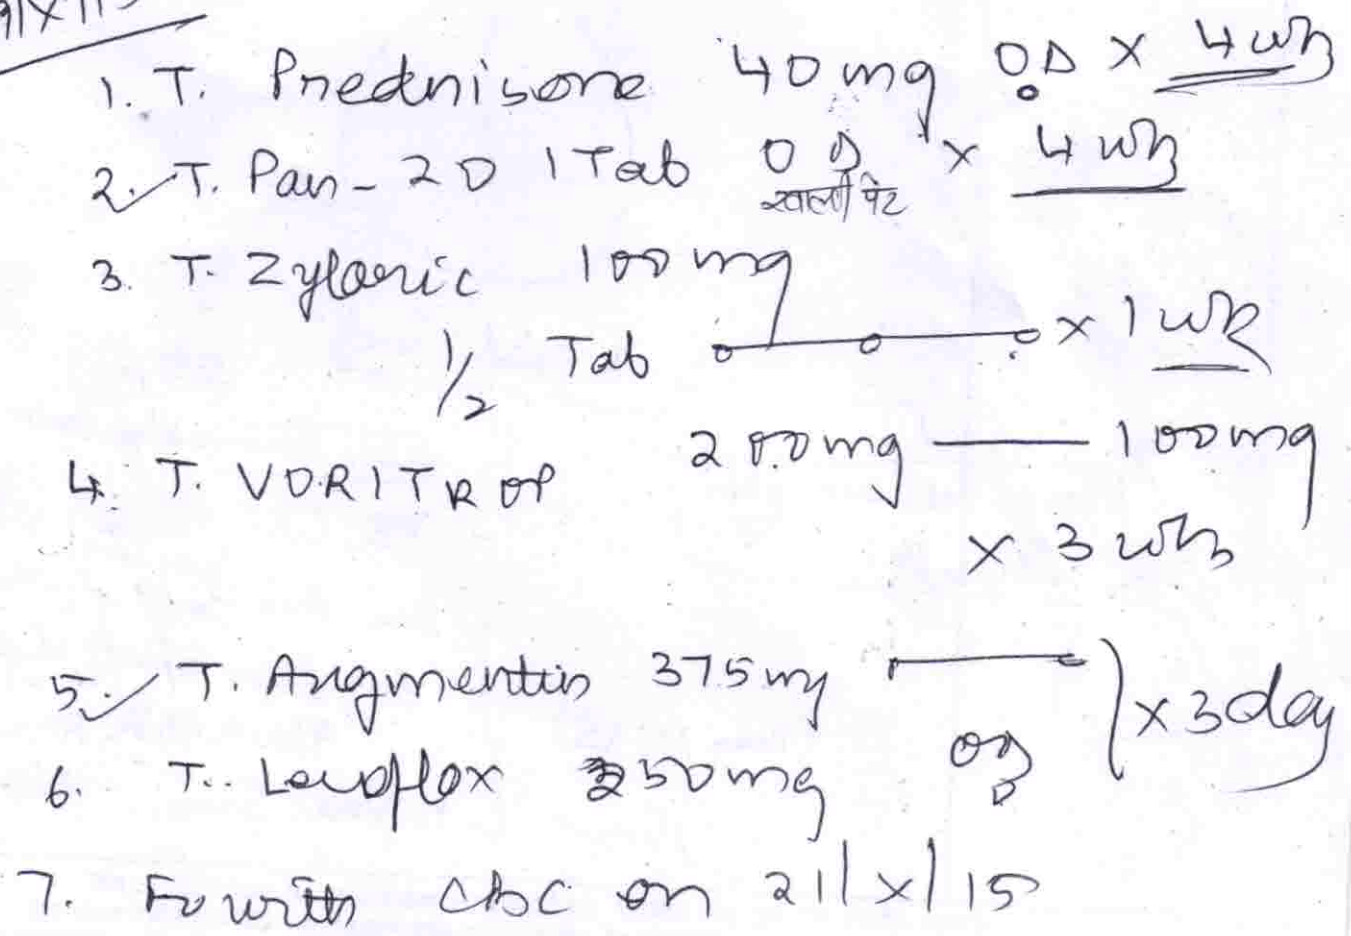 1. T. Prednisone 40mg OD x 4 wks
2. T. Pan-20 1 Tab OD x 4 wks
खाली पेट
3. T. Zyloric 100mg
1/2 Tab x 1 wk
4. T. VORITROP 200mg — 100mg
x 3 wks
5. T. Augmentin 375mg
6. T. Levoflox 250mg OD } x 3 day
7. Fu with CBC on 21/x/15